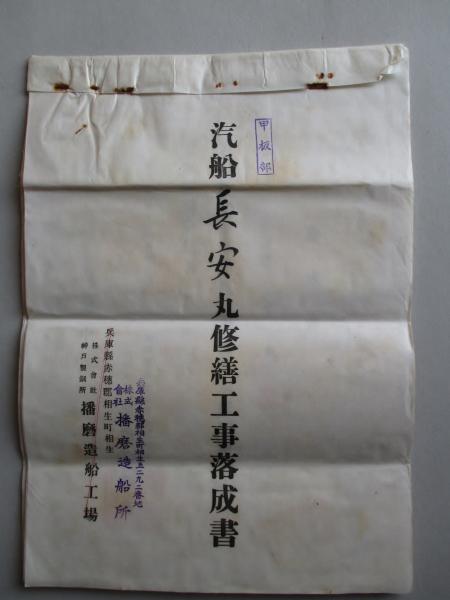 甲板部
汽船長安丸修繕工事落成書
兵庫縣赤穂郡相生町相生五二九二番地
株式會社播磨造船所
兵庫縣赤穂郡相生町相生
株式會社神戸製鋼所播磨造船工場